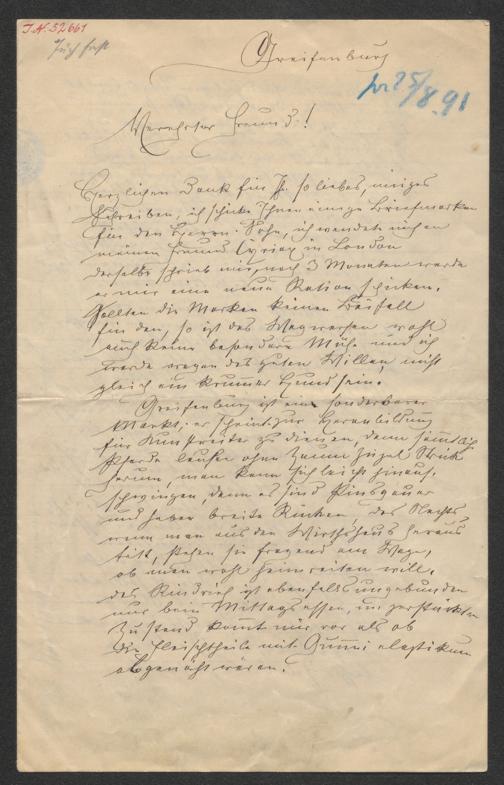 J.N. 52661
Greifenburg
pr. 25/8. 91
Verehrter Freund!
Herzlichen Dank für Ihr so liebes, einziges
Schreiben, ich schicke Ihnen einige Briefmarken
für den Herrn Sohn, ich wendete mich an
meinen Freund in London
derselbe schrieb mir, nach 3 Monaten werde
er mir eine neue Ration schicken.
Sollten die Marken keinen Beifall
finden, so ist das Wegwerfen wohl
auch keine besondere Mühe und ich
werde wegen des guten Willen nicht
gleich ein krummer Hund sein.
Greifenburg ist ein sonderbarer
Markt, er scheint zur Heranbildung
für Kunstreiter zu dienen, denn sämtlich
Pferde laufen ohne Zaum Zügel Strick
herum, man kann sich leicht hinauf
schwingen, denn es sind Pinzgauer
und haben breite Rücken, des Nachts
wenn man aus dem Wirthshaus heraus
tritt, stehen sie fragend am Wege,
ob man wohl heimreiten will.
das Rindvieh ist ebenfalls ungebunden
nur beim Mittagessen, im zerstückten
Zustand kommt mir vor als ob
die Fleischtheile mit Gummi elastikum
abgenäht wären.